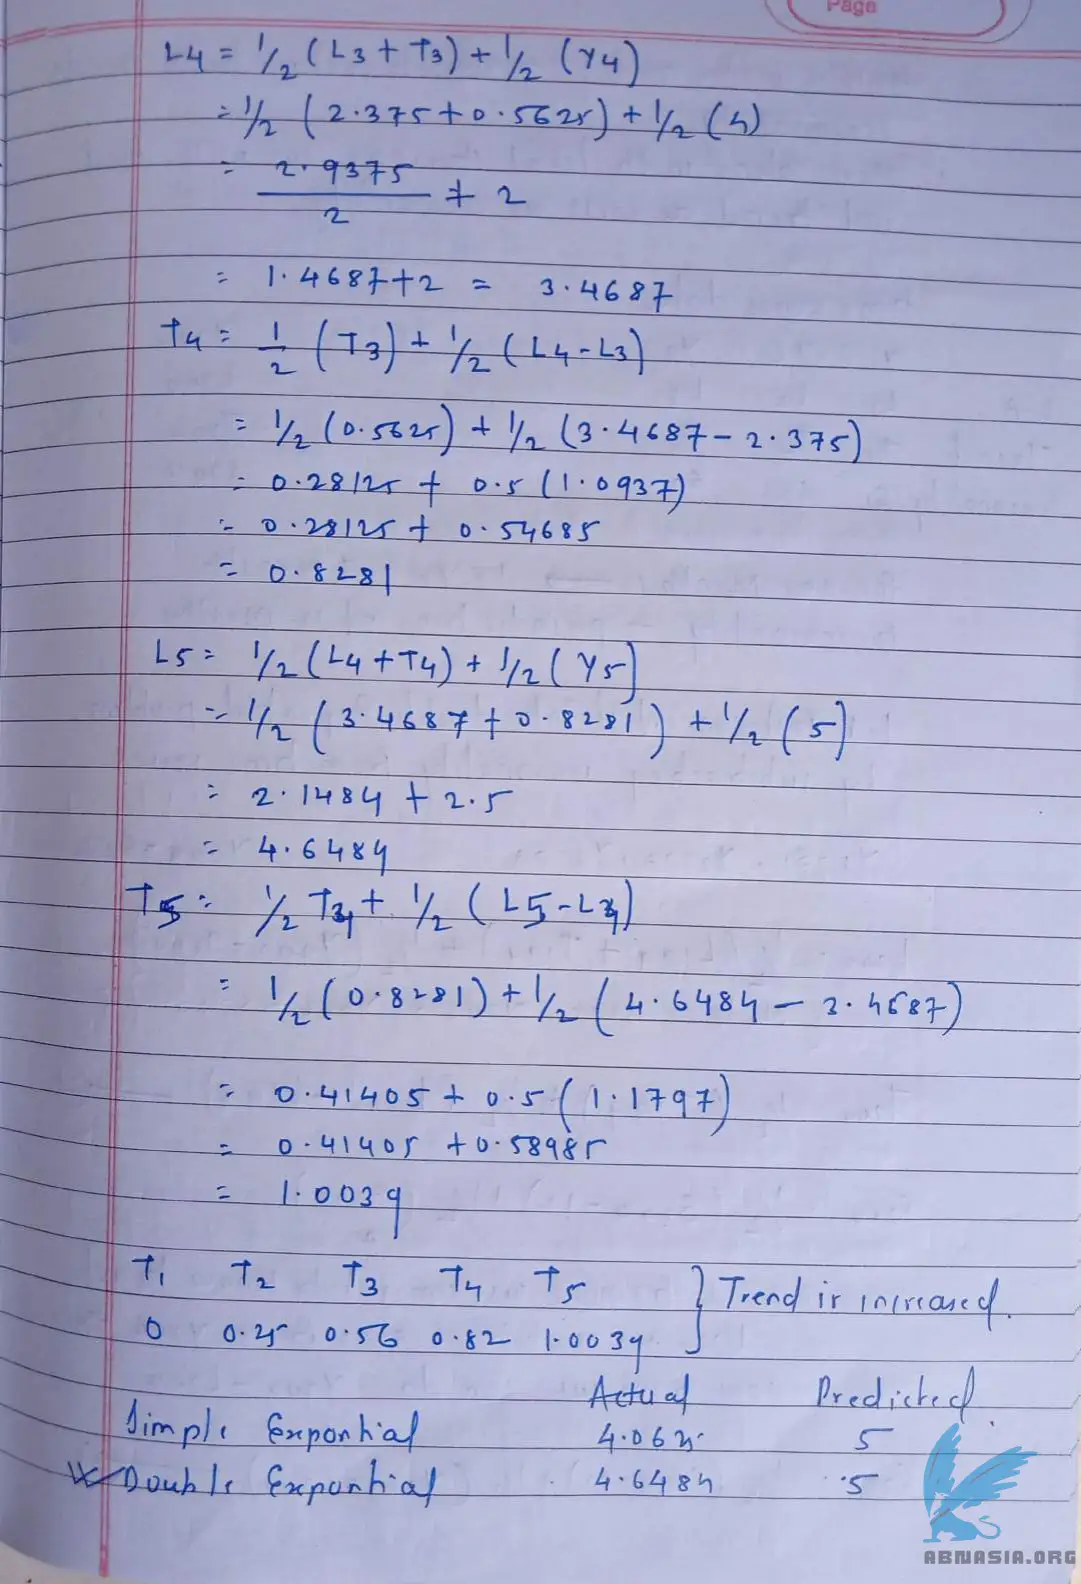 Page
L4 = 1/2 (L3 + T3) + 1/2 (Y4)
= 1/2 (2.375 + 0.5625) + 1/2 (4)
= 2.9375/2 + 2
= 1.4687 + 2 = 3.4687
T4 = 1/2 (T3) + 1/2 (L4 - L3)
= 1/2 (0.5625) + 1/2 (3.4687 - 2.375)
= 0.28125 + 0.5 (1.0937)
= 0.28125 + 0.54685
= 0.8281
L5 = 1/2 (L4 + T4) + 1/2 (Y5)
= 1/2 (3.4687 + 0.8281) + 1/2 (5)
= 2.1484 + 2.5
= 4.6484
T5 = 1/2 T4 + 1/2 (L5 - L4)
= 1/2 (0.8281) + 1/2 (4.6484 - 3.4687)
= 0.41405 + 0.5 (1.1797)
= 0.41405 + 0.58985
= 1.0039
T1 T2 T3 T4 T5 } Trend is increased.
0 0.25 0.56 0.82 1.0039
Actual Predicted
Simple Exponential 4.0625 5
Double Exponential 4.6484 5
ABNASIA.ORG